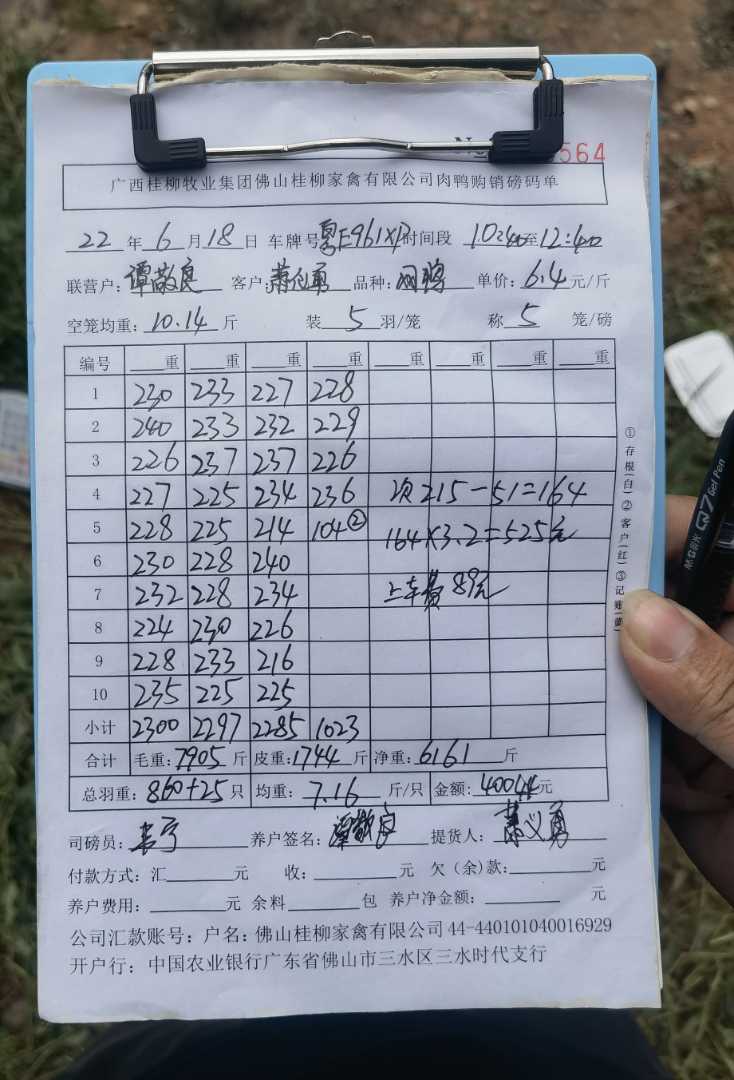 564
广西桂柳牧业集团佛山桂柳家禽有限公司肉鸭购销磅码单
22 年 6 月 18 日 车牌号 粤E961XP 时间段 10:40 至 12:40
联营户: 谭敬良 客户: 萧义勇 品种: 单价: 6.4 元/斤
空笼均重: 10.14 斤 装 5 羽/笼 称 5 笼/磅
编号 重 重 重 重 重 重 重 重
1 230 233 227 228
2 240 233 232 229
3 226 237 237 226
4 227 225 234 236 次215-51=164
5 228 225 214 104② 164×3.2=525元
6 230 228 240
7 232 228 234 上车费89元
8 224 230 226
9 228 233 216
10 235 225 225
小计 2300 2297 2285 1023
合计 毛重: 7905 斤 皮重: 1744 斤 净重: 6161 斤
总羽重: 860+25 只 均重: 7.16 斤/只 金额: 40044 元
司磅员: 养户签名: 谭敬良 提货人: 萧义勇
付款方式: 汇 元 收: 元 欠(余)款: 元
养户费用: 元 余料 包 养户净金额: 元
公司汇款账号: 户名: 佛山桂柳家禽有限公司 44-440101040016929
开户行: 中国农业银行广东省佛山市三水区三水时代支行
①存根(白)②客户(红)③记账(蓝)
M&G晨光 Q7 Gel Pen